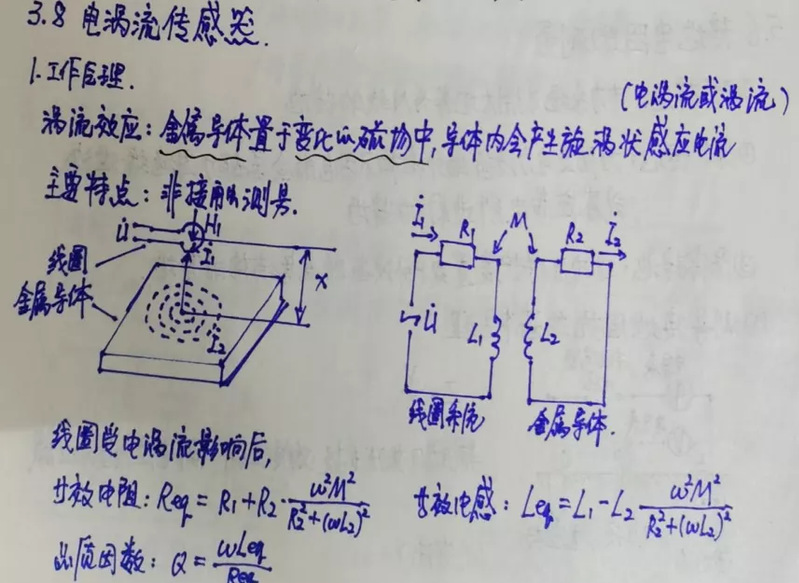 3.8 电涡流传感器.
1.工作原理.
(电涡流或涡流)
涡流效应：金属导体置于变化的磁场中,导体内会产生旋涡状感应电流
主要特点：非接触测量.
U̇ H₁
İ₁
线圈
金属导体
x
İ₂
İ₁ R₁ M R₂ İ₂
U̇ L₁ L₂
线圈系统 金属导体.
线圈受电涡流影响后,
等效电阻：Req = R₁+R₂·ω²M²/(R₂²+(ωL₂)²) 等效电感：Leq=L₁-L₂ ω²M²/(R₂²+(ωL₂)²)
品质因数：Q = ωLeq/Req